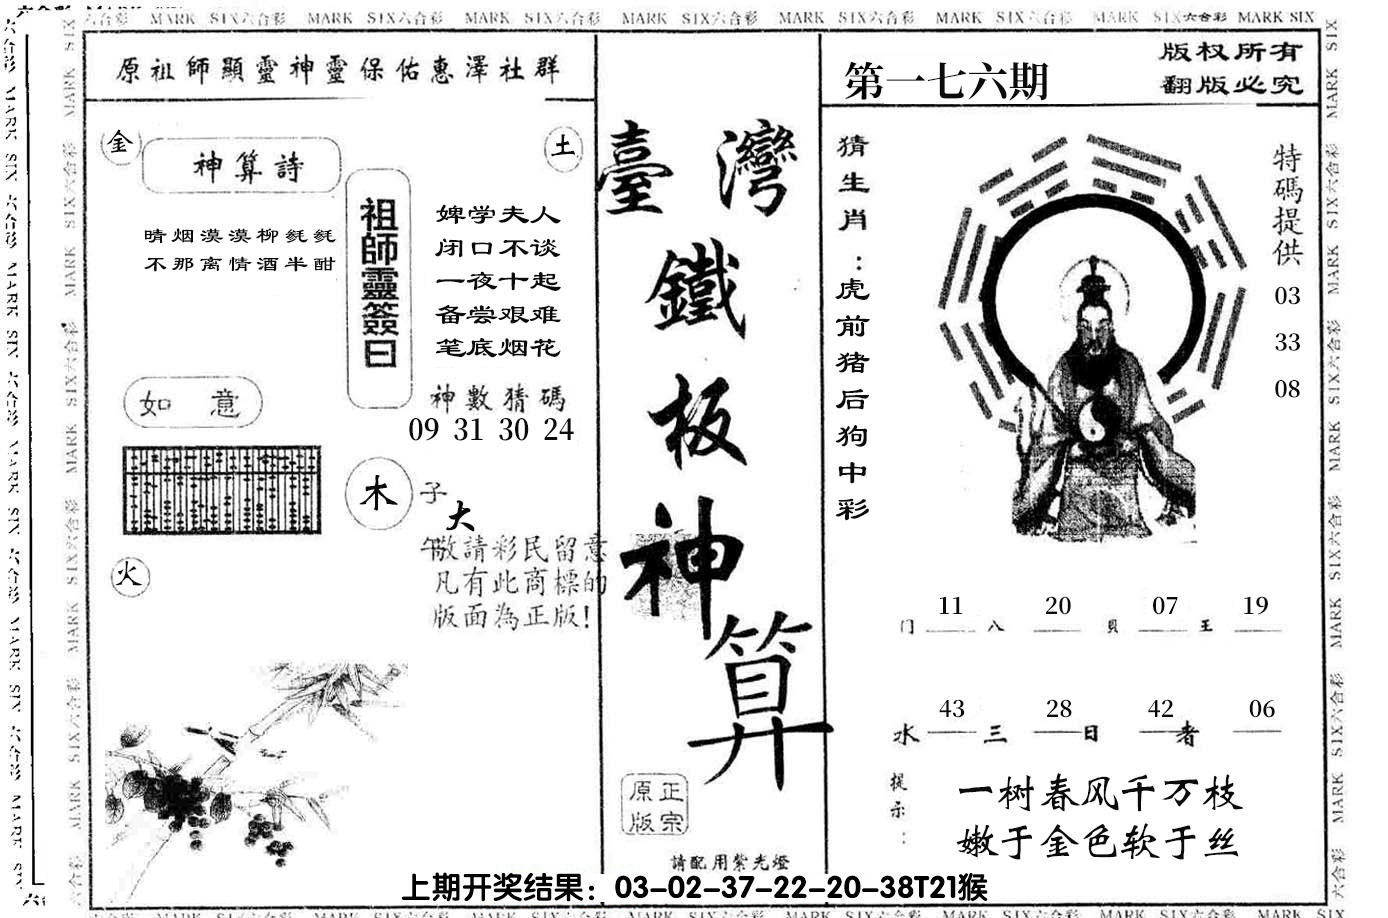 六合彩 MARK SIX六合彩 MARK SIX六合彩 MARK SIX六合彩 MARK SIX六合彩 MARK SIX六合彩 MARK SIX六合彩 MARK SIX六合彩 MARK SIX
原祖師顯靈神靈保佑惠澤社群
金
土
神算詩
晴烟漠漠柳毵毵
不那离情酒半酣
祖師靈簽曰
婢学夫人
闭口不谈
一夜十起
备尝艰难
笔底烟花
神數猜碼
09 31 30 24
如 意
木
子
大
午
火
敬請彩民留意
凡有此商標的
版面為正版!
臺灣
鐵
板
神
算
正宗
原版
請配用紫光燈
第一七六期
版权所有
翻版必究
猜生肖:虎前猪后狗中彩
特碼提供
03
33
08
11 20 07 19
门 八 貝 王
43 28 42 06
水 三 日 者
提示:
一树春风千万枝
嫩于金色软于丝
上期开奖结果：03-02-37-22-20-38T21猴